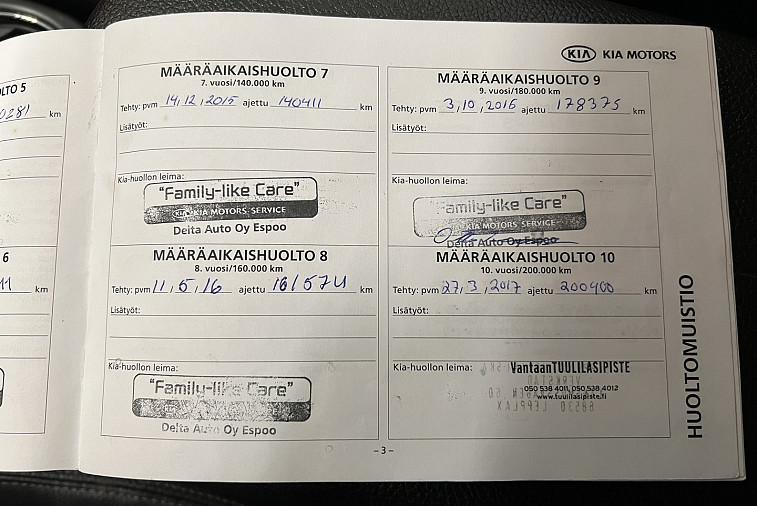 KIA KIA MOTORS
LTO 5
0281 km
6
11 km
MÄÄRÄAIKAISHUOLTO 7
7. vuosi/140.000 km
Tehty: pvm 14,12,2015 ajettu 140411 km
Lisätyöt:
Kia-huollon leima:
"Family-like Care"
KIA KIA MOTORS SERVICE
Delta Auto Oy Espoo
MÄÄRÄAIKAISHUOLTO 8
8. vuosi/160.000 km
Tehty: pvm 11,5,16 ajettu 161574 km
Lisätyöt:
Kia-huollon leima:
"Family-like Care"
Delta Auto Oy Espoo
MÄÄRÄAIKAISHUOLTO 9
9. vuosi/180.000 km
Tehty: pvm 3,10,2016 ajettu 178375 km
Lisätyöt:
Kia-huollon leima:
"Family-like Care"
KIA MOTORS SERVICE
Delta Auto Oy Espoo
MÄÄRÄAIKAISHUOLTO 10
10. vuosi/200.000 km
Tehty: pvm 27,3,2017 ajettu 200400 km
Lisätyöt:
Kia-huollon leima:
VantaanTUULILASIPISTE
050 538 4011, 050 538 4012
www.tuulilasipiste.fi
68530 LEPPLAX
HUOLTOMUISTIO
– 3 –